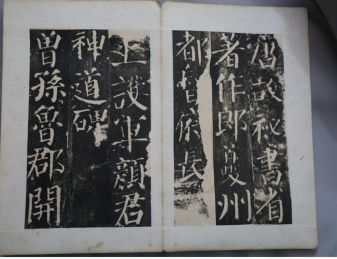 唐故祕書省
著作郎夔州
都督府長
上護軍顏君
神道碑
曾孫魯郡開